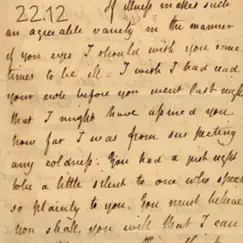 22.12
If illness makes such
an agreeable variety in the manner
of your eyes I should wish you some
times to be ill. I wish I had read
your note before you went last night
that I might have assured you
how far I was from suspecting
any coldness. You had a just right
to be a little silent to one who speaks
so plainly to you. You must believe
you shall, you will that I can